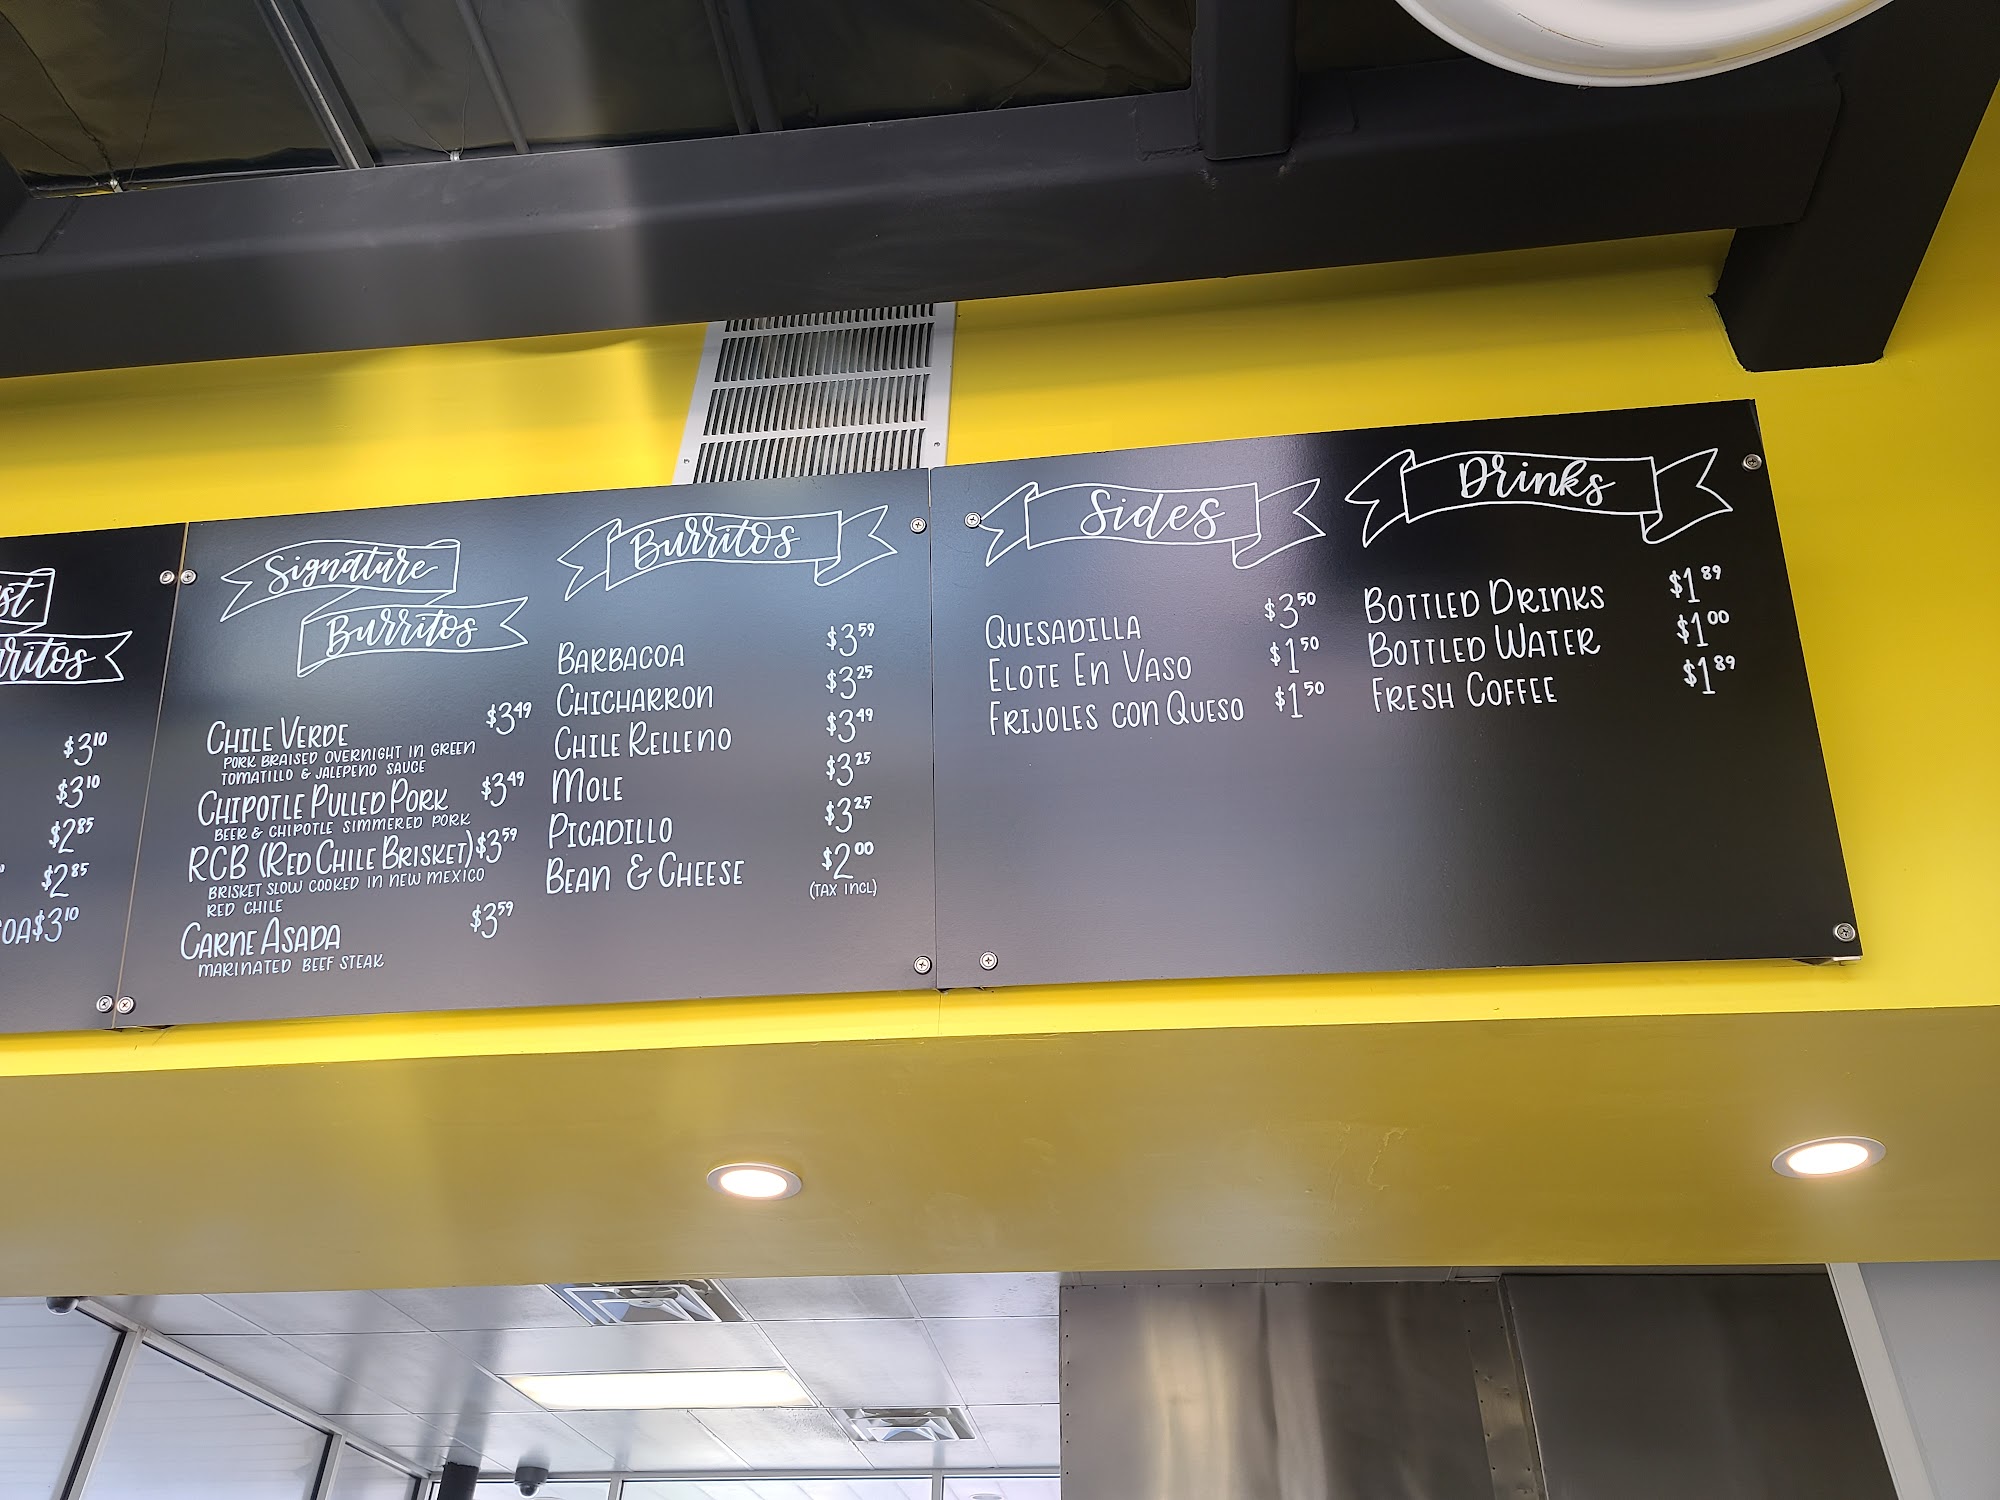 st
rritos
$3.10
$3.10
$2.85
$2.85
OA $3.10
Signature
Burritos
CHILE VERDE $3.49
PORK BRAISED OVERNIGHT IN GREEN
TOMATILLO & JALEPENO SAUCE
CHIPOTLE PULLED PORK $3.49
BEER & CHIPOTLE SIMMERED PORK
RCB (RED CHILE BRISKET) $3.59
BRISKET SLOW COOKED IN NEW MEXICO
RED CHILE
CARNE ASADA $3.59
MARINATED BEEF STEAK
Burritos
BARBACOA $3.59
CHICHARRON $3.25
CHILE RELLENO $3.49
MOLE $3.25
PICADILLO $3.25
BEAN & CHEESE $2.00
(TAX INCL)
Sides
QUESADILLA $3.50
ELOTE EN VASO $1.50
FRIJOLES CON QUESO $1.50
Drinks
BOTTLED DRINKS $1.89
BOTTLED WATER $1.00
FRESH COFFEE $1.89